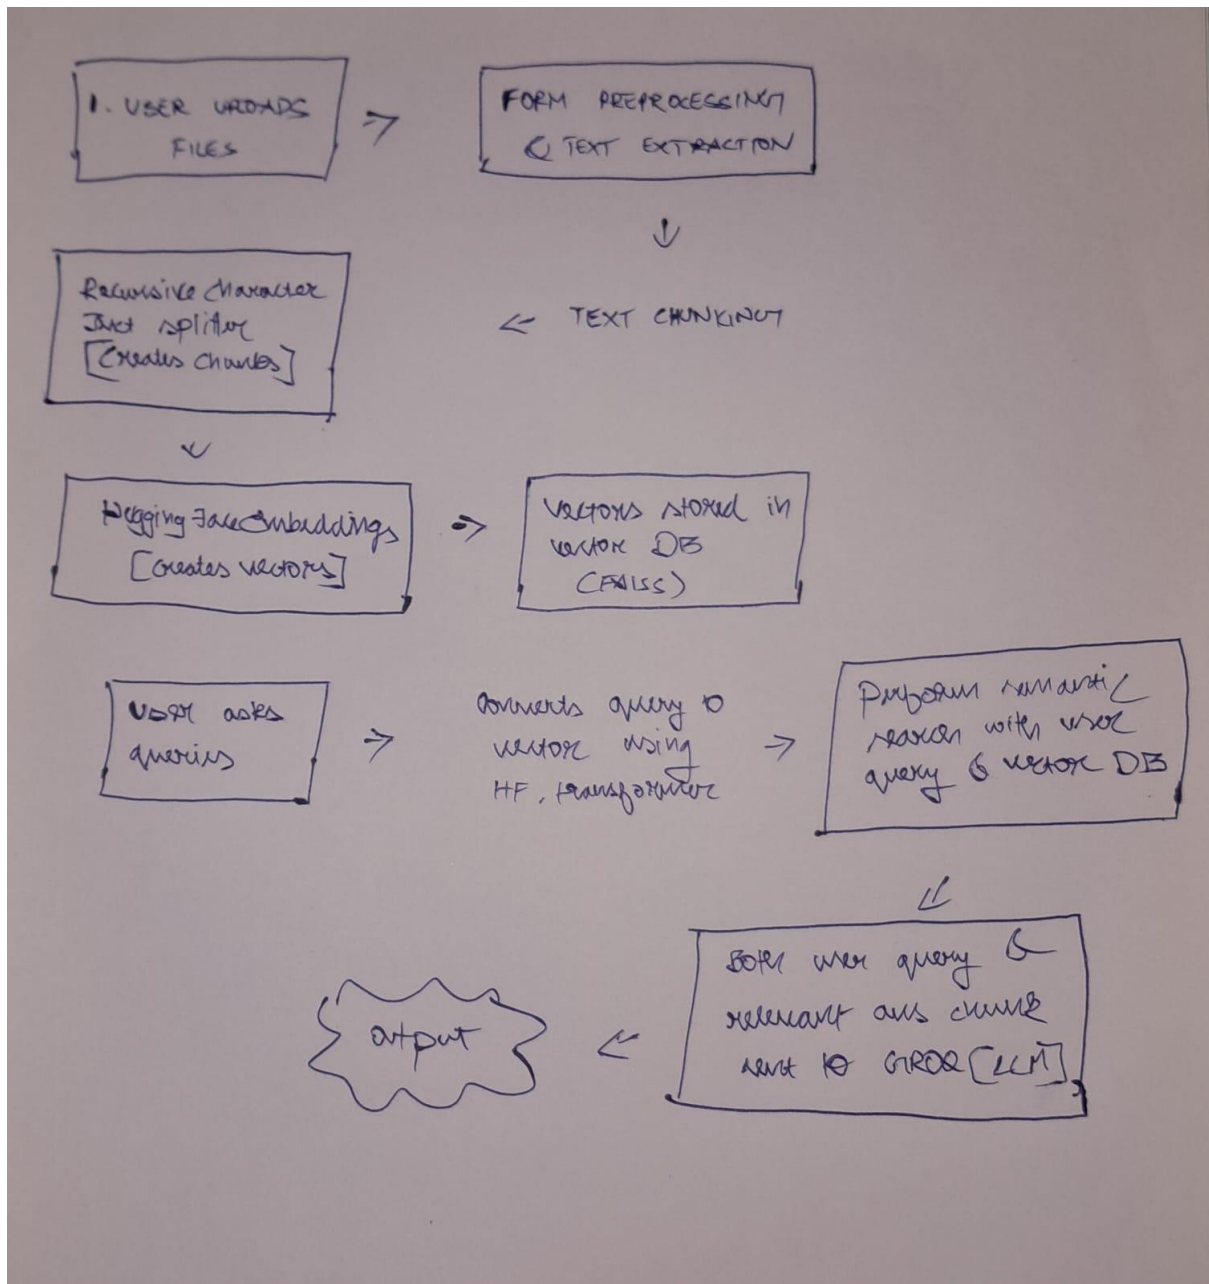 1. USER UPLOADS
FILES
FORM PREPROCESSING
& TEXT EXTRACTION
TEXT CHUNKING
Recursive character
Text splitter
[Creates chunks]
HuggingFaceEmbeddings
[creates vectors]
Vectors stored in
vector DB
(FAISS)
User asks
queries
Converts query to
vector using
HF. transformer
Perform semantic
search with user
query & vector DB
Both user query &
relevant ans chunk
sent to GROQ [LLM]
output